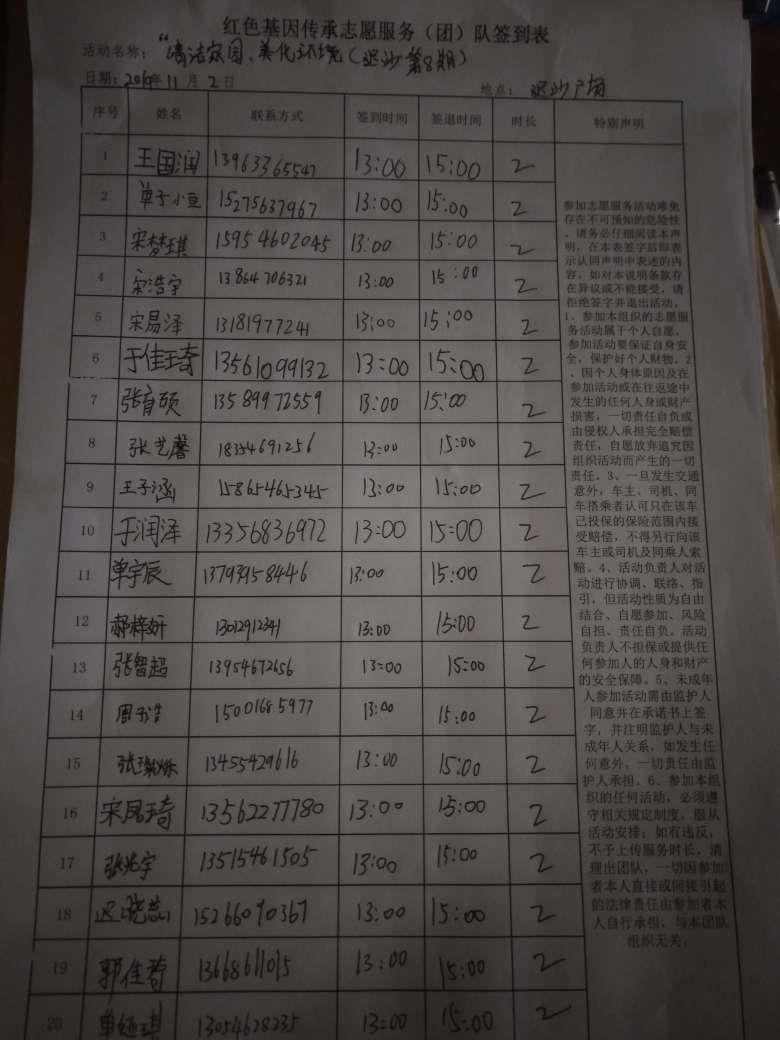 红色基因传承志愿服务（团）队签到表
活动名称：“清洁家园、美化环境（迟沙第8期）
日期：2019年11月2日 地点：迟沙广场
序号 姓名 联系方式 签到时间 签退时间 时长 特别声明
1 王国润 13963365547 13:00 15:00 2
2 单于小童 15275637967 13:00 15:00 2
3 宋梦琪 15954602045 13:00 15:00 2
4 宋浩宇 13864706321 13:00 15:00 2
5 宋易泽 13181977241 13:00 15:00 2
6 于佳琦 13561099132 13:00 15:00 2
7 张育硕 13589972559 13:00 15:00 2
8 张艺馨 18354691256 13:00 15:00 2
9 王子涵 15865465345 13:00 15:00 2
10 于润泽 13356836972 13:00 15:00 2
11 单宇辰 13793958446 13:00 15:00 2
12 郝梓妍 13012912341 13:00 15:00 2
13 张智超 13954672656 13:00 15:00 2
14 周子浩 15001685977 13:00 15:00 2
15 张 13455429616 13:00 15:00 2
16 宋凤琦 13562277780 13:00 15:00 2
17 张兆宇 13515461505 13:00 15:00 2
18 迟晓蕊 15266090367 13:00 15:00 2
19 郭佳 13668611015 13:00 15:00 2
20 单 琪 13054628235 13:00 15:00 2
参加志愿服务活动难免
存在不可预知的危险性
，请务必仔细阅读本声
明，在本表签字后即表
示认同声明中表述的内
容，如对本说明条款存
在异议或不能接受，请
拒绝签字并退出活动。
1、参加本组织的志愿服
务活动属于个人自愿，
参加活动要保证自身安
全，保护好个人财物。2
、因个人身体原因及在
参加活动或在往返途中
发生的任何人身或财产
损害，一切责任自负或
由侵权人承担完全赔偿
责任，自愿放弃追究因
组织活动而产生的一切
责任。3、一旦发生交通
意外，车主、司机、同
车搭乘者认可只在该车
已投保的保险范围内接
受赔偿，不得另行向该
车主或司机及同乘人索
赔。4、活动负责人对活
动进行协调、联络、指
引，但活动性质为自由
结合、自愿参加、风险
自担、责任自负。活动
负责人不担保或提供任
何参加人的人身和财产
的安全保障。5、未成年
人参加活动需由监护人
同意并在承诺书上签
字，并注明监护人与未
成年人关系，如发生任
何意外，一切责任由监
护人承担。6、参加本组
织的任何活动，必须遵
守相关规定制度，服从
活动安排；如有违反，
不予上传服务时长，清
理出团队，一切因参加
者本人直接或间接引起
的法律责任由参加者本
人自行承担，与本团队
组织无关。